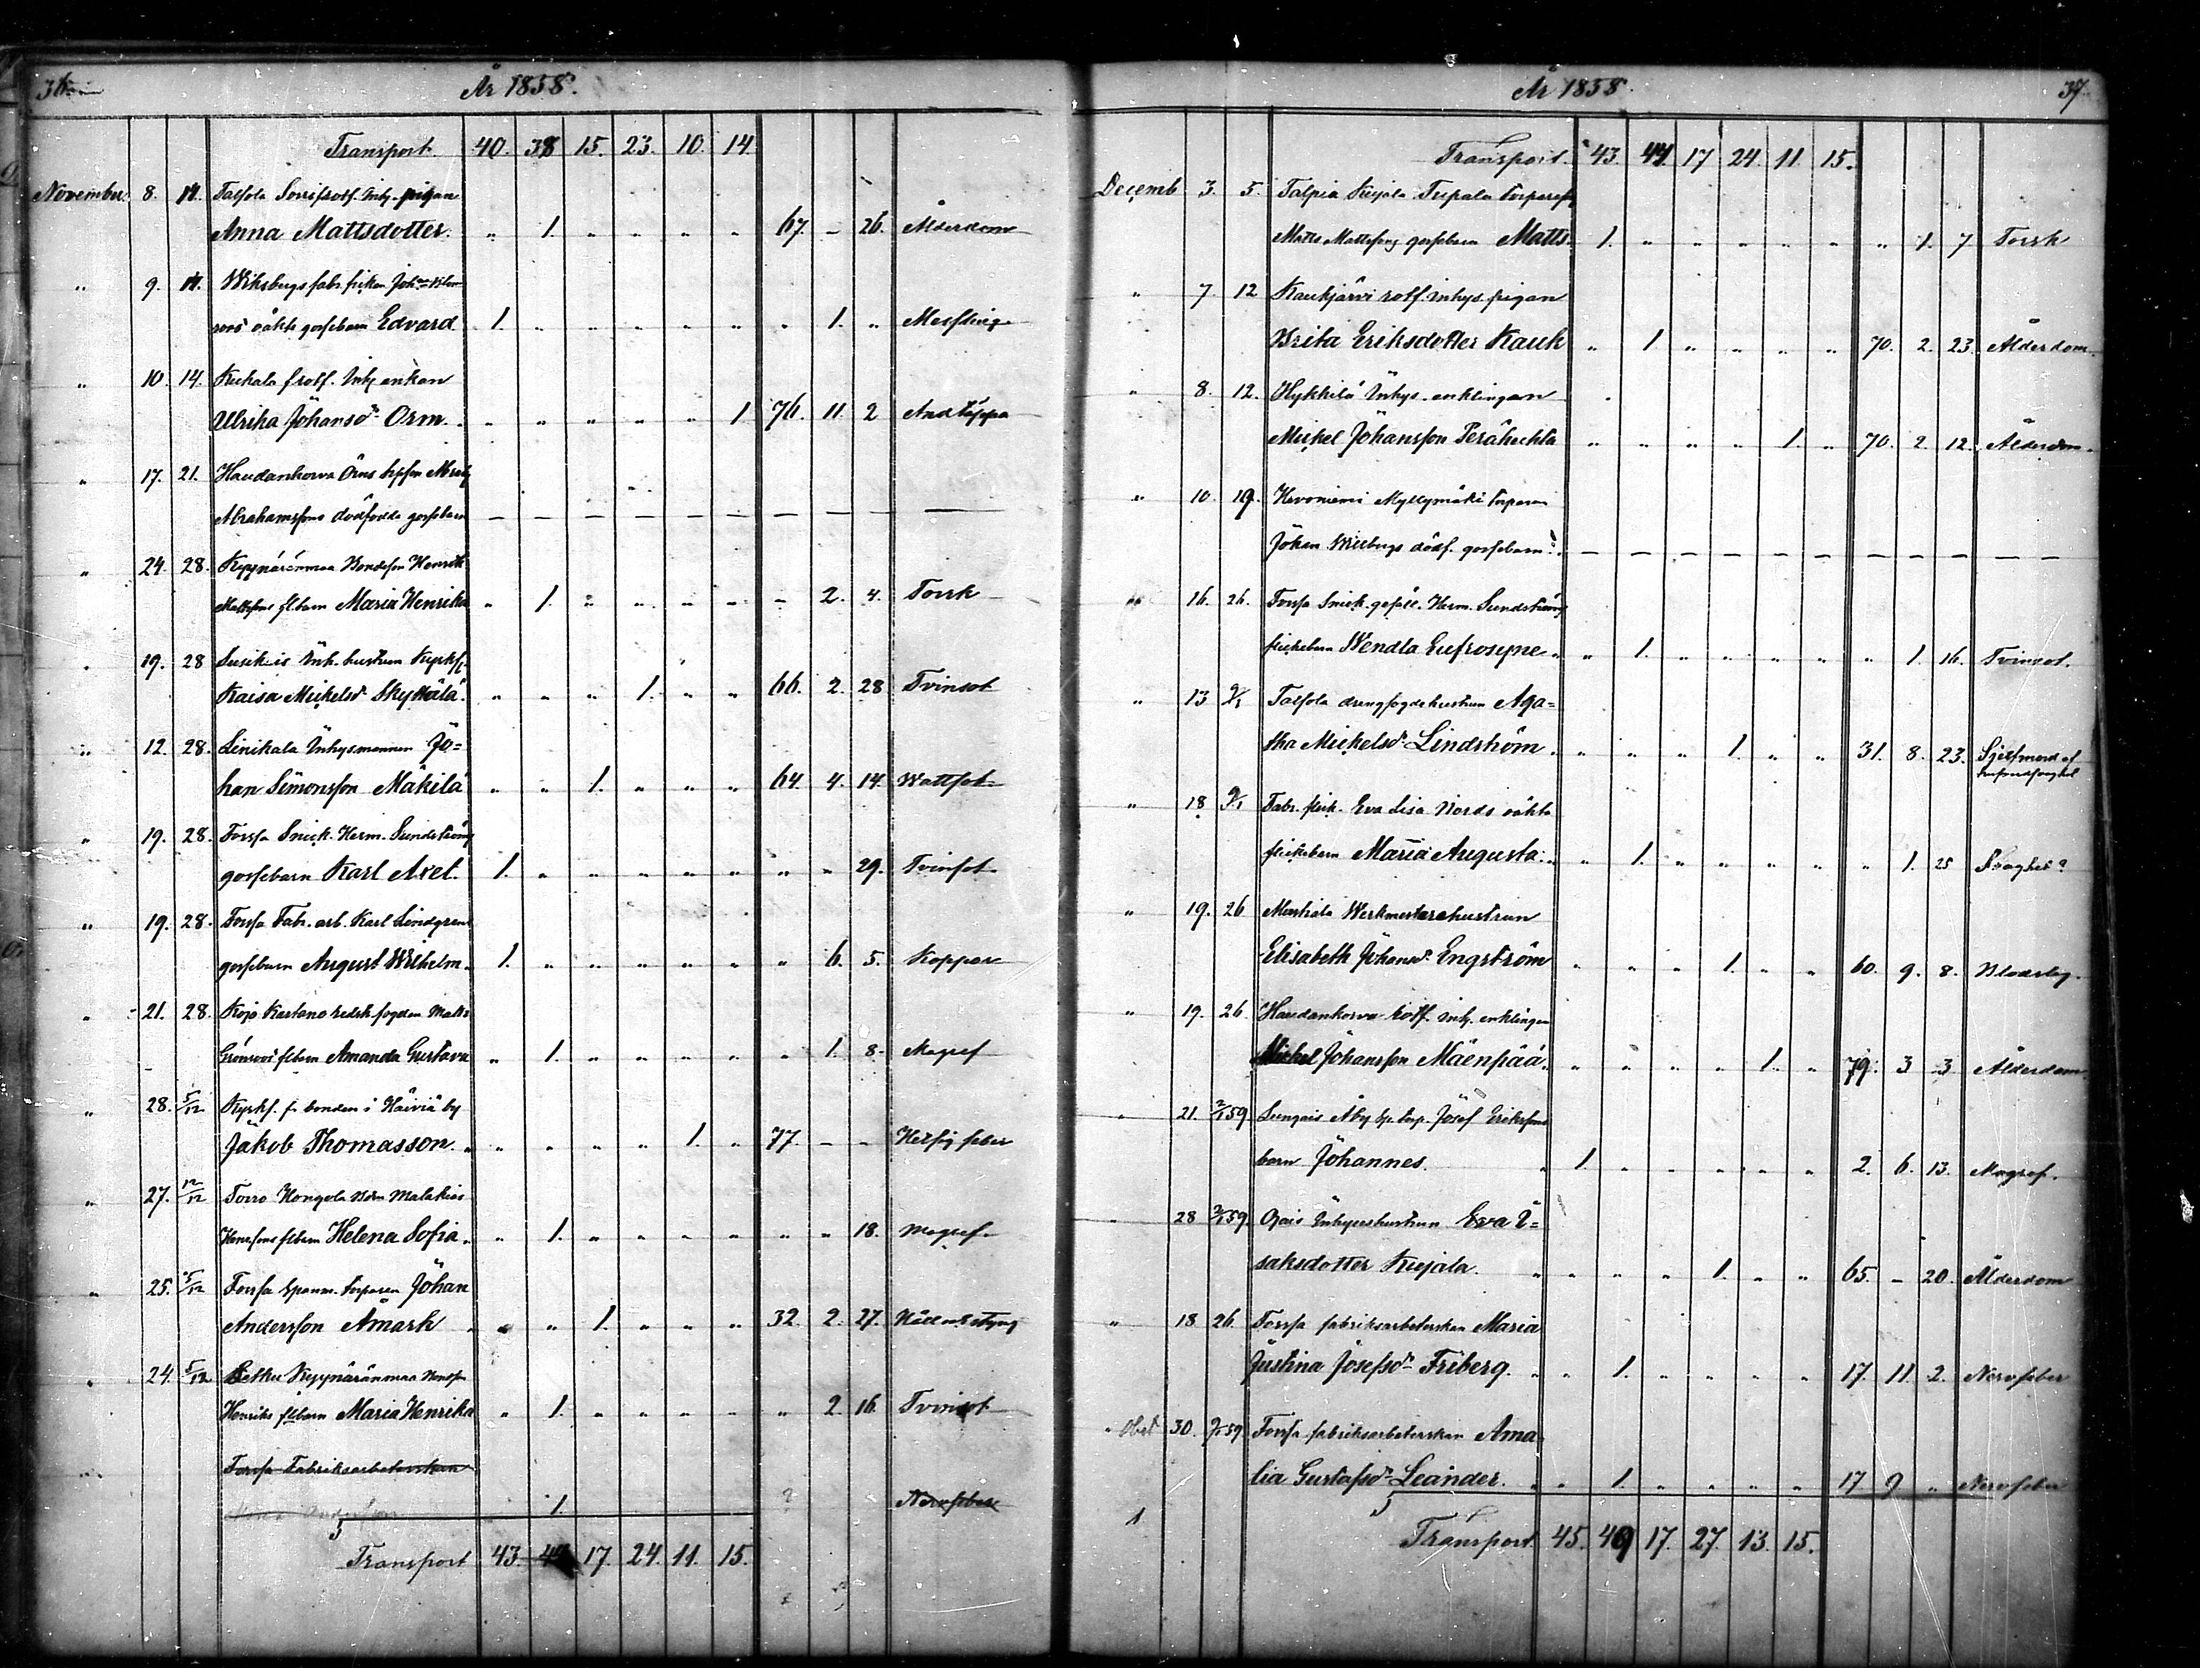 36
År 1858.
Transport. 40. 38 15. 23. 10. 14
November. 8. 14. Talsola Sorrifrotf. Inh. pigan
Anna Mattsdotter. „ 1. „ „ „ „ 67. – 26. Ålderdom
„ 9. 14. Wiksbergs fabr. pickan Joh:a
oäkta gossebarn Edvard 1. „ „ „ „ „ „ 1. „ Messling
„ 10. 14. Kuhala frotf. Inh enkan
Ulrika Johansdr Orm. „ „ „ „ „ 1 76. 11. 2 Andtäppa
„ 17. 21. Haudankorva
Abrahamssons dödfödda gossebarn — — — — — — — — — —
„ 24. 28. Kyynäränmaa Bondeson Henrik
Mattssons flbarn Maria Henrika „ 1. „ „ „ „ – 2. 4. Torsk
„ 19. 28 Susikis Inh. hustrun Kyrkf.
Kaisa Mickelsdr Skyttälä. „ „ „ 1. „ „ 66. 2. 28 Tvinsot
„ 12. 28. Linikala Inhysmannen Jo=
han Simonsson Mäkilä „ „ 1. „ „ „ 64. 4. 14. Wattsot
„ 19. 28. Forssa Snick. Herm. Sundström
gossebarn Karl Axel. 1. „ „ „ „ „ „ „ 29. Tvinsot.
„ 19. 28. Forssa Fabr. arb. Karl Lindgrens
gossebarn August Wilhelm. 1. „ „ „ „ „ „ 6. 5. Koppor
„ 21. 28. Kojo Kartano redsk.fogden Matts
Grönroos flbarn Amanda Gustava „ 1. „ „ „ „ „ 1. 8. Magref
„ 28. 5/12 Kyrkf. f. bonden i Häiviä by
Jakob Thomasson. „ „ „ „ 1. „ 77. – – Hetsig feber
„ 27. 12/12 Torro Hongola Bdn Malakias
Henrssons flbarn Helena Sofia. „ 1. „ „ „ „ „ „ 18. Magref.
„ 25. 5/12 Forssa Spanm. torparen Johan
Andersson Åmark „ „ 1. „ „ „ 32. 2. 27. Håll o. Styng
„ 24. 5/12 Kyynäränmaa Bondsn
Henriks flbarn Maria Henrika „ 1. „ „ „ „ „ 2 16. Tvinsot
„ Forssa Fabriksarbeterskan
1. ? Nervfeber
5
Transport 43. 44 17. 24. 11. 15.
År 1858.
37.
Transport. 43. 44 17 24 11. 15.
Decemb 3. 5. Talpia Kujala Tupala torparesn
Matts Mattssons gossebarn Matts. 1. „ „ „ „ „ „ 1. 7 Torsk
„ 7. 12 Kaukjärvi rotf. inhys. pigan
Brita Eriksdotter Kauk „ 1. „ „ „ „ 70. 2. 23. Ålderdom.
„ 8. 12. Hykkilä Inhys. enklingen
Mickel Johansson Perähuhta „ „ „ „ 1. „ 70. 2. 12. Ålderdom.
„ 10. 19. Kevoniemi Myllymäki torparen
Johan Willbergs dödf. gossebarn — — — — — — — — — —
„ 16. 26. Forssa Snick. gesäll. Herm. Sundström
flickebarn Wendla Eufrosyne „ „ 1. „ „ „ „ „ 1. 16. Tvinsot.
„ 13 9/1 Talsola drengfogdehustrun Aga=
tha Mickelsdr Lindström „ „ „ 1. „ „ 31. 8. 23. Sjelfmord af
„ 18 9/1 Fabr. flick. Eva Lisa Nords oäkta
flickebarn Maria Augusta. „ 1. „ „ „ „ „ 1. 25 Svaghet?
„ 19. 26 Mustiala Werkmästarehustrun
Elisabeth Johansdr Engström „ „ „ 1. „ „ 60. 9. 8. Blodslag.
„ 19. 26. Haudankorva rotf. inh. enklingen
Mickel Johansson Mäenpää. „ „ „ „ 1. „ 79. 3 3 Ålderdom
„ 21. 2/1 59. Sungais Åby torp. Josef Erikssons
barn Johannes. 1. „ „ „ „ „ 2. 6. 13. Magref.
28 2/1 59. Ojais Inhyseshustrun Eva I=
saksdotter Kujala. „ „ „ 1. „ „ 65. – 20. Ålderdom
„ 18 26 Forssa fabriksarbeterskan Maria
Justina Josefsdr Friberg. „ 1. „ „ „ „ 17. 11. 2. Nervfeber
„ Obs! 30. 9/1 59. Forssa fabriksarbeterskan Ama
lia Gustafsdr Leander. „ 1. „ „ „ „ 17. 9 „ Nervfeber
1 5
Transport 45. 49 17. 27. 13. 15.